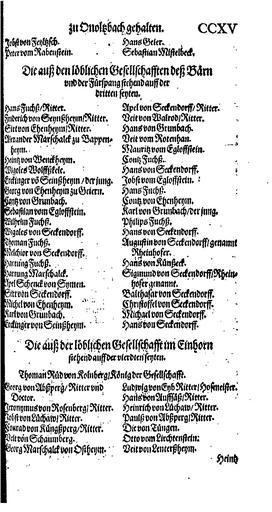 zu Onoltzbach gehalten. CCXV
Jobst von Feyltzsch. Hans Geier.
Peter vom Rabenstein. Sebastian Mistelbeck.
Die auß den löblichen Gesellschafften deß Bärn
und der Fürspang stehend auff der
dritten seyten.
Hans Fuchß/Ritter. Apel von Seckendorff/Ritter.
Friderich von Seynßheym/Ritter. Veit von Walrod/Ritter.
Sixt von Ehenheym/Ritter. Hans von Grunbach.
Alexander Marschalck zu Bappen- Veit vom Rotenhan.
heym. Mauritz vom Egloffstein.
Heintz von Wenckheym. Contz Fuchß.
Wigoles Wolffßkele. Hans von Seckendorff.
Erckinger võ Seinßheym/der jung. Jobst vom Egloffstein.
Georg von Ehenheym zu Geiern. Hans Fuchß.
Contz von Grunbach. Contz von Ehenheym.
Sebastian vom Egloffstein. Karl von Grunbach/der jung.
Wilhelm Fuchß. Philips Fuchß.
Wigoles von Seckendorff. Hans von Seckendorff.
Thoman Fuchß. Augustin von Seckendorff/genannt
Melchior von Seckendorff. Rheinhofer.
Hartung Fuchß. Hans von Künßeck.
Hartung Marschalck. Sigmund von Seckendorff/Rhein-
Apel Schenck von Symten. hofer genannt.
Sixt von Seckendorff. Balthasar von Seckendorff.
Michel von Ehenheym. Christoffel von Seckendorff.
Karl von Grunbach. Michael von Seckendorff.
Erckinger von Seinßheym. Hans von Seckendorff.
Die auß der löblichen Gesellschafft im Einhorn
stehend auff der vierdten seyten.
Thoman Rüd von Kolnberg/König der Gesellschafft.
Georg von Abßperg/Ritter und Ludwig von Eyb Ritter/Hofmeister.
Doctor. Hans von Auffsäß/Ritter.
Jeronymus von Rosenberg/Ritter. Heinrich von Lüchaw/Ritter.
Jobst von Lüchaw/Ritter. Paulß von Abßperg/Ritter.
Conrad von Küngßperg/Ritter. Die von Tüngen.
Veit von Schaumberg. Otto vom Liechtenstein.
Georg Marschalck von Ostheym. Veit von Lentersheym.
Heintz